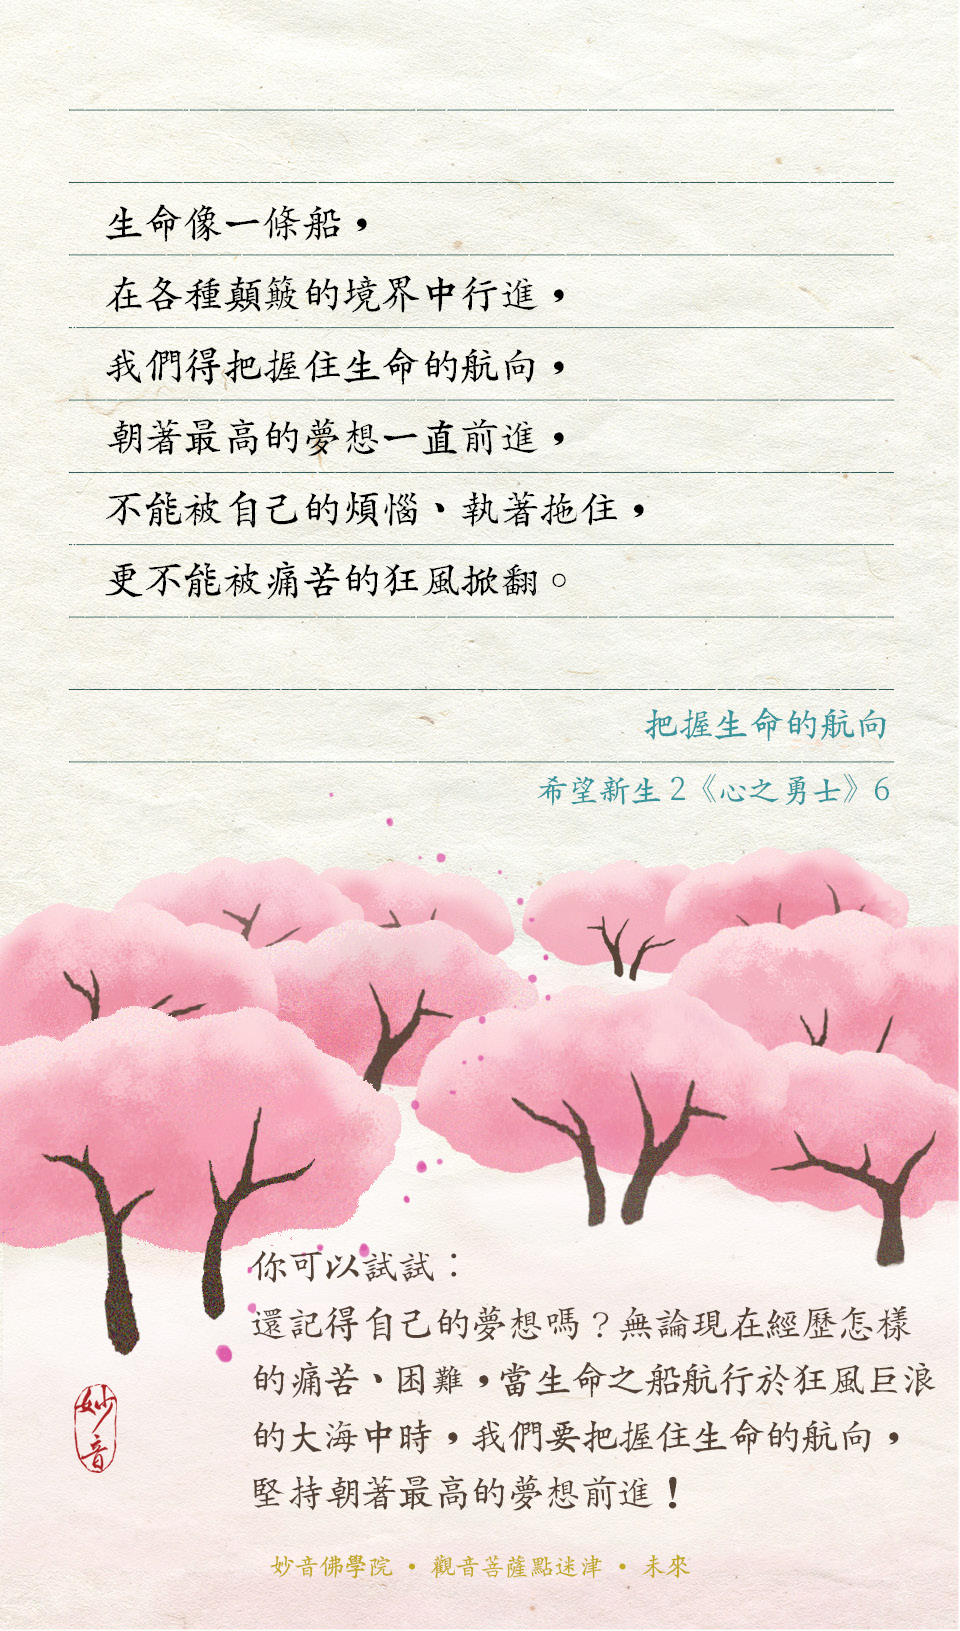 生命像一條船，
在各種顛簸的境界中行進，
我們得把握住生命的航向，
朝著最高的夢想一直前進，
不能被自己的煩惱、執著拖住，
更不能被痛苦的狂風掀翻。
把握生命的航向
希望新生2《心之勇士》6
你可以試試：
還記得自己的夢想嗎？無論現在經歷怎樣
的痛苦、困難，當生命之船航行於狂風巨浪
的大海中時，我們要把握住生命的航向，
堅持朝著最高的夢想前進！
妙音
妙音佛學院 • 觀音菩薩點迷津 • 未來